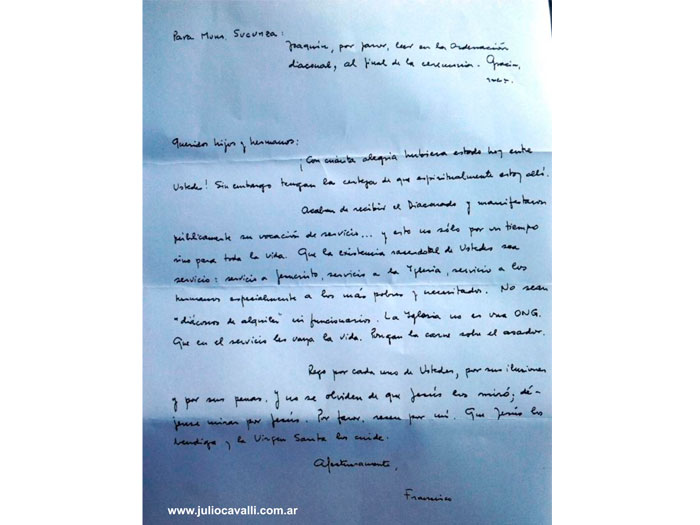 Para Mons. Sucunza:
Joaquín, por favor, leer en la Ordenación
diaconal, al final de la ceremonia. Gracias,
Queridos hijos y hermanos:
¡Con cuánta alegría hubiera estado hoy entre
Ustedes! Sin embargo tengan la certeza de que espiritualmente estoy allí.
Acaban de recibir el Diaconado y manifestaron
públicamente su vocación de servicio... y esto no sólo por un tiempo
sino para toda la vida. Que la existencia sacerdotal de Ustedes sea
servicio: servicio a Jesucristo, servicio a la Iglesia, servicio a los
hermanos especialmente a los más pobres y necesitados. No sean
"diáconos de alquiler" ni funcionarios. La Iglesia no es una ONG.
Que en el servicio les vaya la vida. Pongan la carne sobre el asador.
Rezo por cada uno de Ustedes, por sus ilusiones
y por sus penas. Y no se olviden de que Jesús los miró; dé-
jense mirar por Jesús. Por favor, recen por mí. Que Jesús los
bendiga y la Virgen Santa los cuide.
Afectuosamente,
Francisco
www.juliocavalli.com.ar